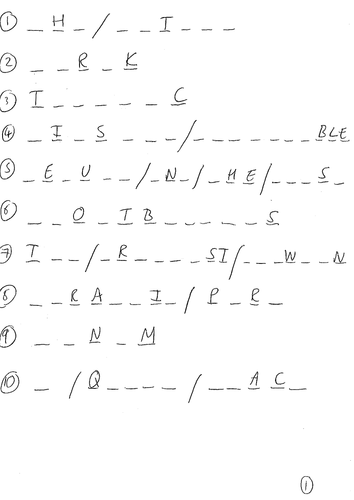 ① _ H _ / _ _ I _ _ _
② _ _ R _ K
③ I _ _ _ _ _ C
④ _ I _ S _ _ _ / _ _ _ _ _ _ _ BLE
⑤ _ E _ U _ _ / _ N _ / _ HE / _ _ _ S _
⑥ _ _ O _ T B _ _ _ _ _ S
⑦ T _ _ / _ R _ _ _ _ SI / _ _ _ W _ _ N
⑧ _ _ R A _ _ I _ / P _ R _
⑨ _ _ N _ M
⑩ _ / Q _ _ _ _ / _ _ A C _
①